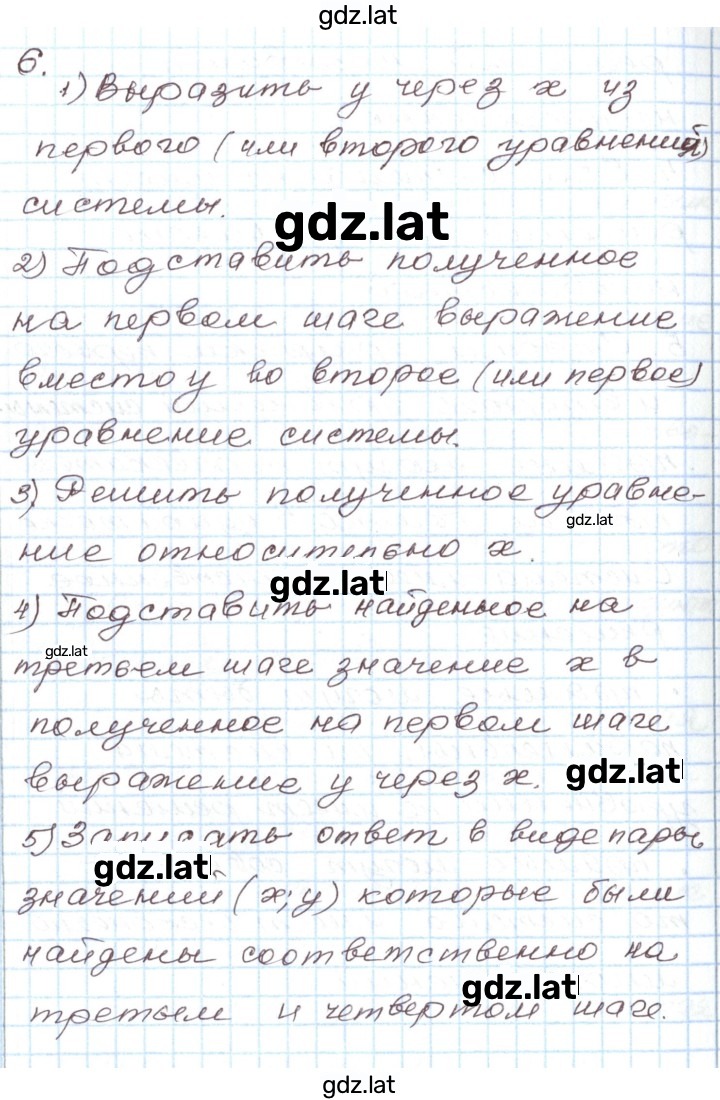 gdz.lat
6.
1) Выразить у через х из
первого (или второго уравнений)
системы.
gdz.lat
2) Подставить полученное
на первом шаге выражение
вместо у во второе (или первое)
уравнение системы.
3) Решить полученное уравне-
gdz.lat
ние относительно х.
gdz.lat
4) Подставить найденное на
gdz.lat
третьем шаге значение х в
полученное на первом шаге
выражение у через х.
gdz.lat
5) Записать ответ в виде пары
gdz.lat
значений (х; у) которые были
найдены соответственно на
gdz.lat
третьем и четвертом шаге.
gdz.lat